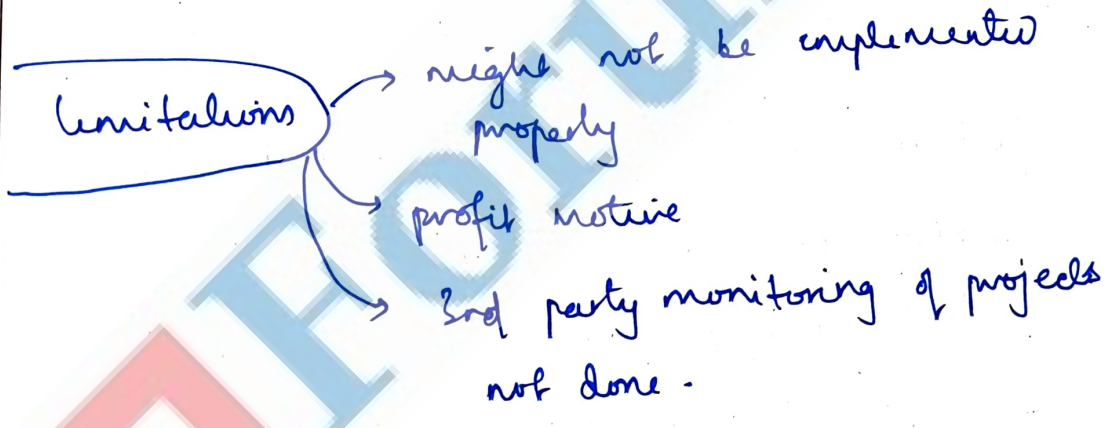 Limitations
might not be implemented
properly
profit motive
3rd party monitoring of projects
not done.
Forum